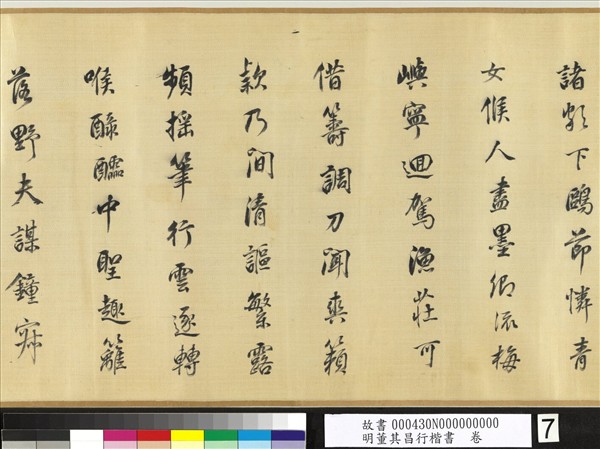 諸下鷗節憐青
女候人盡墨卿流梅
嶼寧迴駕漁莊可
借籌調刁聞爽籟
欵乃間清謳繁露
頻搖筆行雲逐轉
喉醁醽中聖趣籬
落野夫謀鐘
故書 000430N000000000
明董其昌行楷書 卷
7